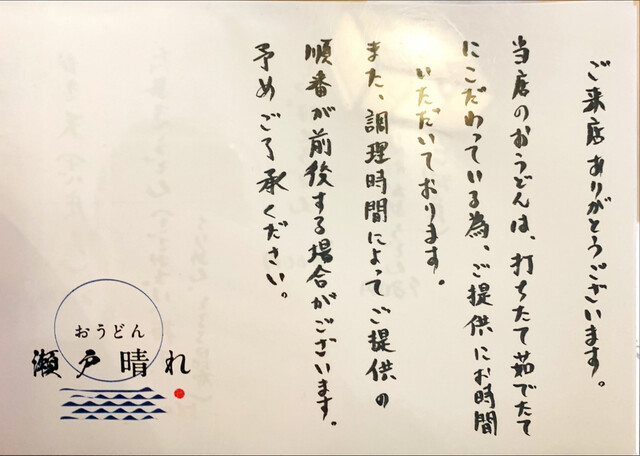 ご来店ありがとうございます。
当店のおうどんは、打ちたて茹でたて
にこだわっている為、ご提供にお時間
いただいております。
また、調理時間によってご提供の
順番が前後する場合がございます。
予めご了承ください。
おうどん
瀬戸晴れ